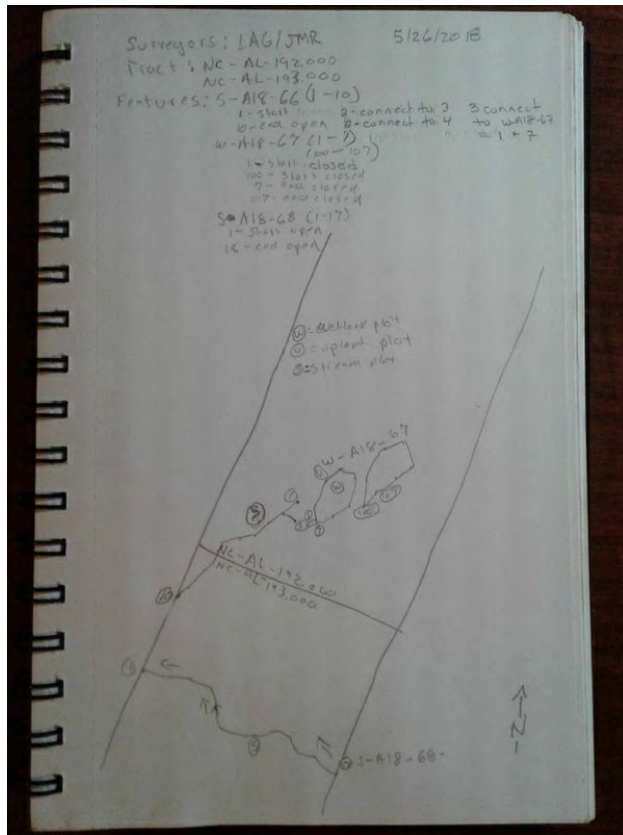 Surveyors: LAG/JMR 5/26/2018
Tract: NC-AL-192.000
NC-AL-193.000
Features: S-A18-66 (1-10)
1-start 2-connect to 3 3 connect
10-end open 2-connect to 4 to W-A18-67
W-A18-67 (1-7) = 1 + 7
(100-107)
1-start closed
100-start closed
7-end closed
107-end closed
S-A18-68 (1-17)
1-start open
18-end open
W = wetland plot
U = upland plot
S = stream plot
W-A18-67
100
107
NC-AL-192.000
NC-AL-193.000
S-A18-68
N